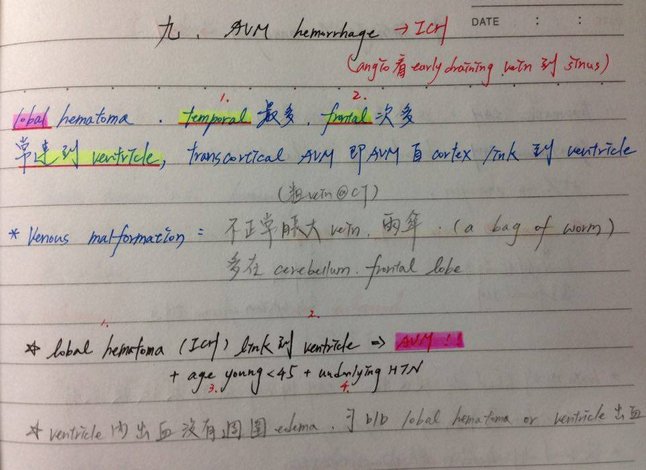 DATE : :
九、AVM hemorrhage → ICH
(angio看early draining vein 到 sinus)
1. 2.
lobal hematoma . temporal 最多 . frontal 次多
常連到 ventricle, transcortical AVM 即 AVM 自 cortex link 到 ventricle
(粗vein@CT)
* Venous malformation : 不正常脹大 vein . 雨傘 . (a bag of worm)
多在 cerebellum . frontal lobe
1. 2.
☆ lobal hematoma (ICH) link 到 ventricle => AVM !!
+ age young <45 + underlying HTN
3. 4.
☆ ventricle 內出血沒有周圍 edema . 可 b/b lobal hematoma or ventricle 出血